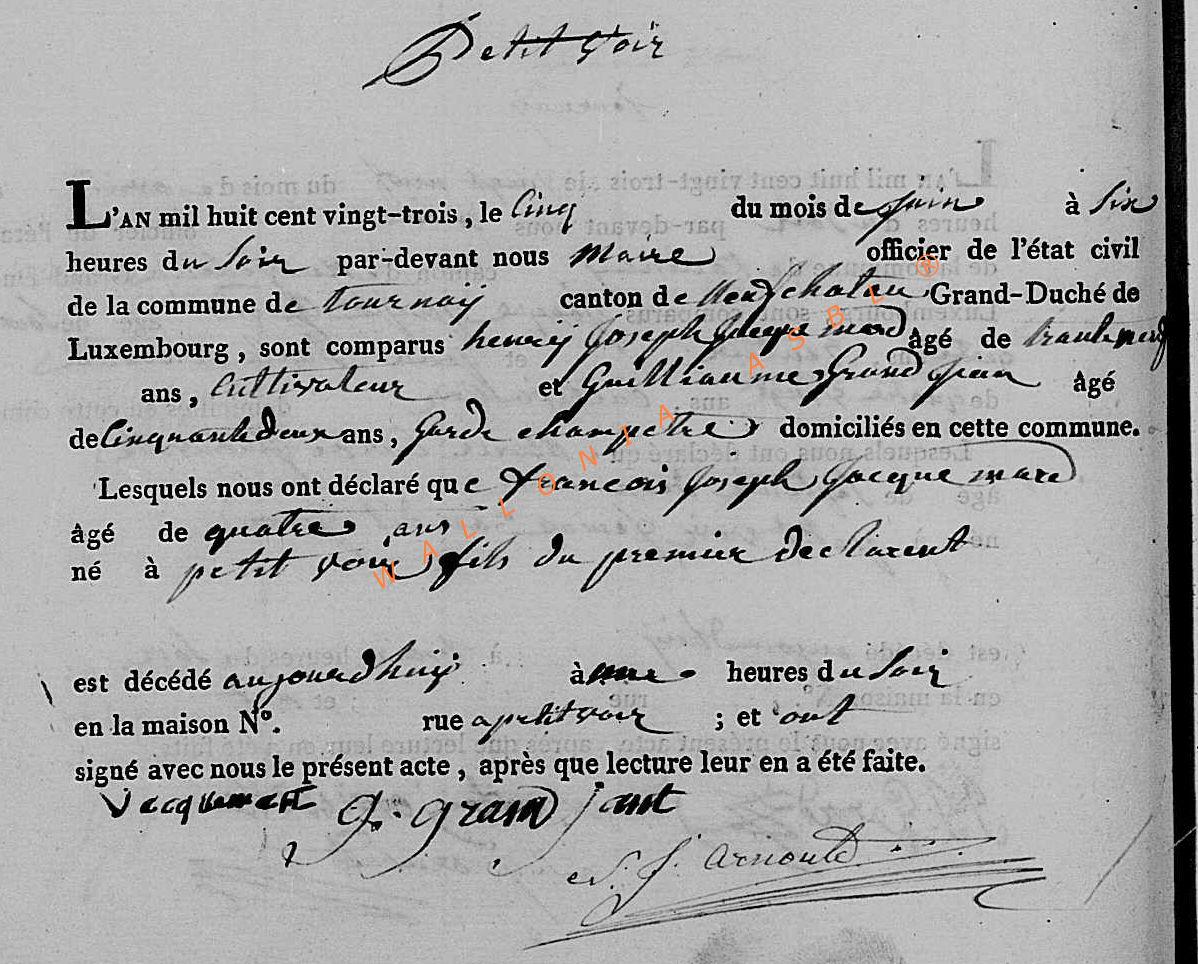 Petit Voir
L'AN mil huit cent vingt-trois, le Cinq du mois de juin à Six
heures du Soir par-devant nous maire officier de l'état civil
de la commune de tournaÿ canton de Neufchateau Grand-Duché de
Luxembourg, sont comparus henrÿ Joseph Jacque mard âgé de trante neuf
ans, Cultivateur et Guilliaume Grand jean âgé
de Cinquante deux ans, Garde champetre domiciliés en cette commune.
Lesquels nous ont déclaré que francois Joseph Jacque mard
âgé de quatre ans
né à petit voir fils du premier declarent
est décédé aujourdhuÿ à une heures du Soir
en la maison N°. rue a petit voir ; et ont
signé avec nous le présent acte, après que lecture leur en a été faite.
G. grand jant
J. Arnould
WALLONIA ASBL ®